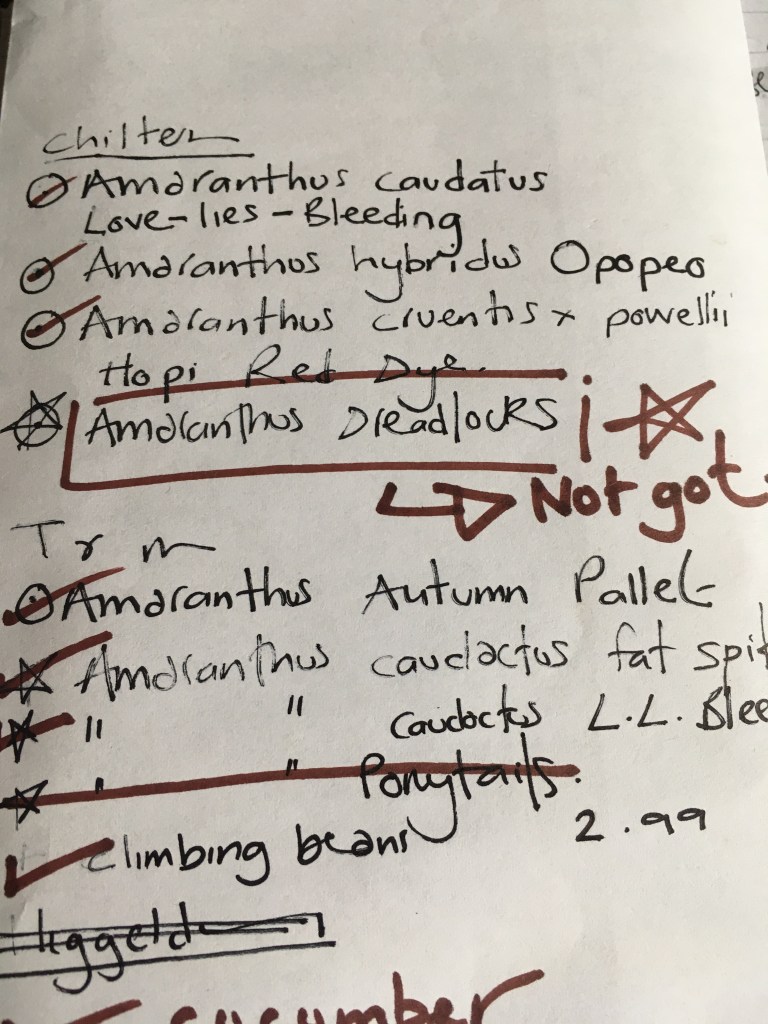 Chiltern
Amaranthus caudatus
Love-lies-Bleeding
Amaranthus hybridus Opopeo
Amaranthus cruentis x powellii
Hopi Red Dye.
Amaranthus Dreadlocks
Not got
T & m
Amaranthus Autumn Pallet
Amaranthus caudactus fat spi
" " Caudactus L.L. Blee
" " Ponytails.
climbing beans 2.99
cucumber